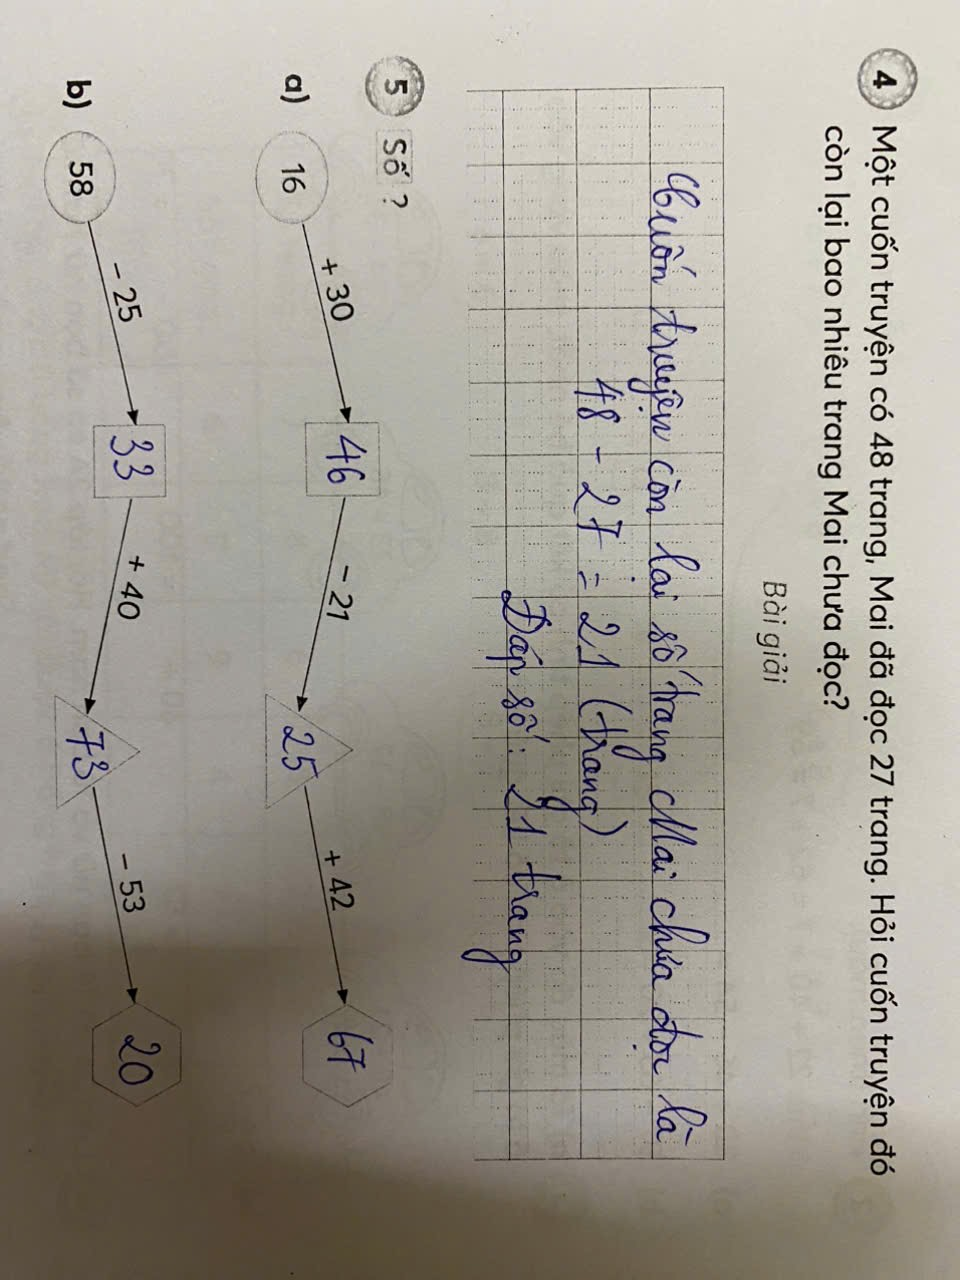 4 Một cuốn truyện có 48 trang, Mai đã đọc 27 trang. Hỏi cuốn truyện đó
còn lại bao nhiêu trang Mai chưa đọc?
Bài giải
Cuốn truyện còn lại số trang Mai chưa đọc là
48 - 27 = 21 (trang)
Đáp số: 21 trang
5 Số ?
a) 16 + 30 46 - 21 25 + 42 67
b) 58 - 25 33 + 40 73 - 53 20